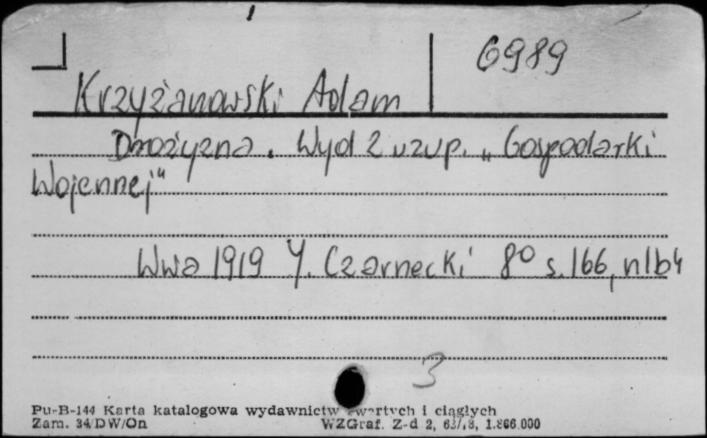 6989
Krzyżanowski Adam
Drożyzna. Wyd 2 uzup. „Gospodarki
Wojennej"
Wwa 1919 Y. Czarnecki 8° s. 166, nlb 4
3
Pu-B-144 Karta katalogowa wydawnictw zwartych i ciągłych
Zam. 34/DW/On WZGraf. Z-d 2, 1.866.000